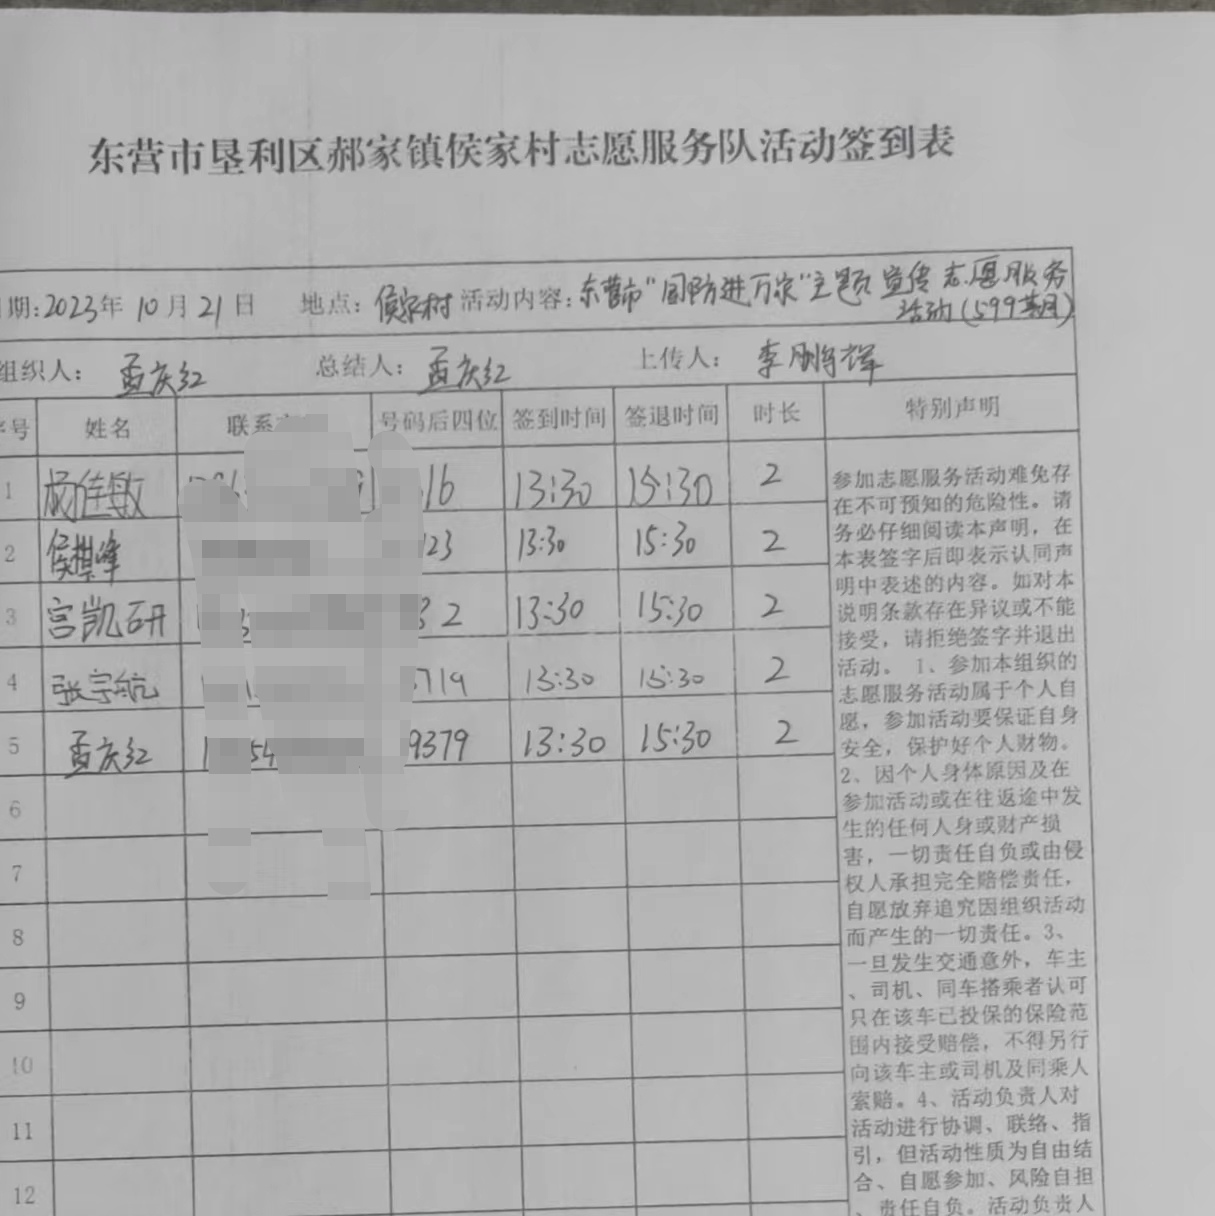 东营市垦利区郝家镇侯家村志愿服务队活动签到表
期:2023年 10月21日 地点:侯家村 活动内容:东营市"国防进万家"主题宣传志愿服务
活动(599期)
组织人: 孟庆红 总结人: 孟庆红 上传人: 李鹏辉
序号 姓名 联系 号码后四位 签到时间 签退时间 时长 特别声明
1 杨佳敏 16 13:30 15:30 2
2 侯棋峰 23 13:30 15:30 2
3 宫凯研 32 13:30 15:30 2
4 张宇航 719 13:30 15:30 2
5 孟庆红 9379 13:30 15:30 2
6
7
8
9
10
11
12
参加志愿服务活动难免存
在不可预知的危险性。请
务必仔细阅读本声明，在
本表签字后即表示认同声
明中表述的内容。如对本
说明条款存在异议或不能
接受，请拒绝签字并退出
活动。 1、参加本组织的
志愿服务活动属于个人自
愿，参加活动要保证自身
安全，保护好个人财物。
2、因个人身体原因及在
参加活动或在往返途中发
生的任何人身或财产损
害，一切责任自负或由侵
权人承担完全赔偿责任，
自愿放弃追究因组织活动
而产生的一切责任。3、
一旦发生交通意外，车主
、司机、同车搭乘者认可
只在该车已投保的保险范
围内接受赔偿，不得另行
向该车主或司机及同乘人
索赔。4、活动负责人对
活动进行协调、联络、指
引，但活动性质为自由结
合、自愿参加、风险自担
、责任自负。活动负责人